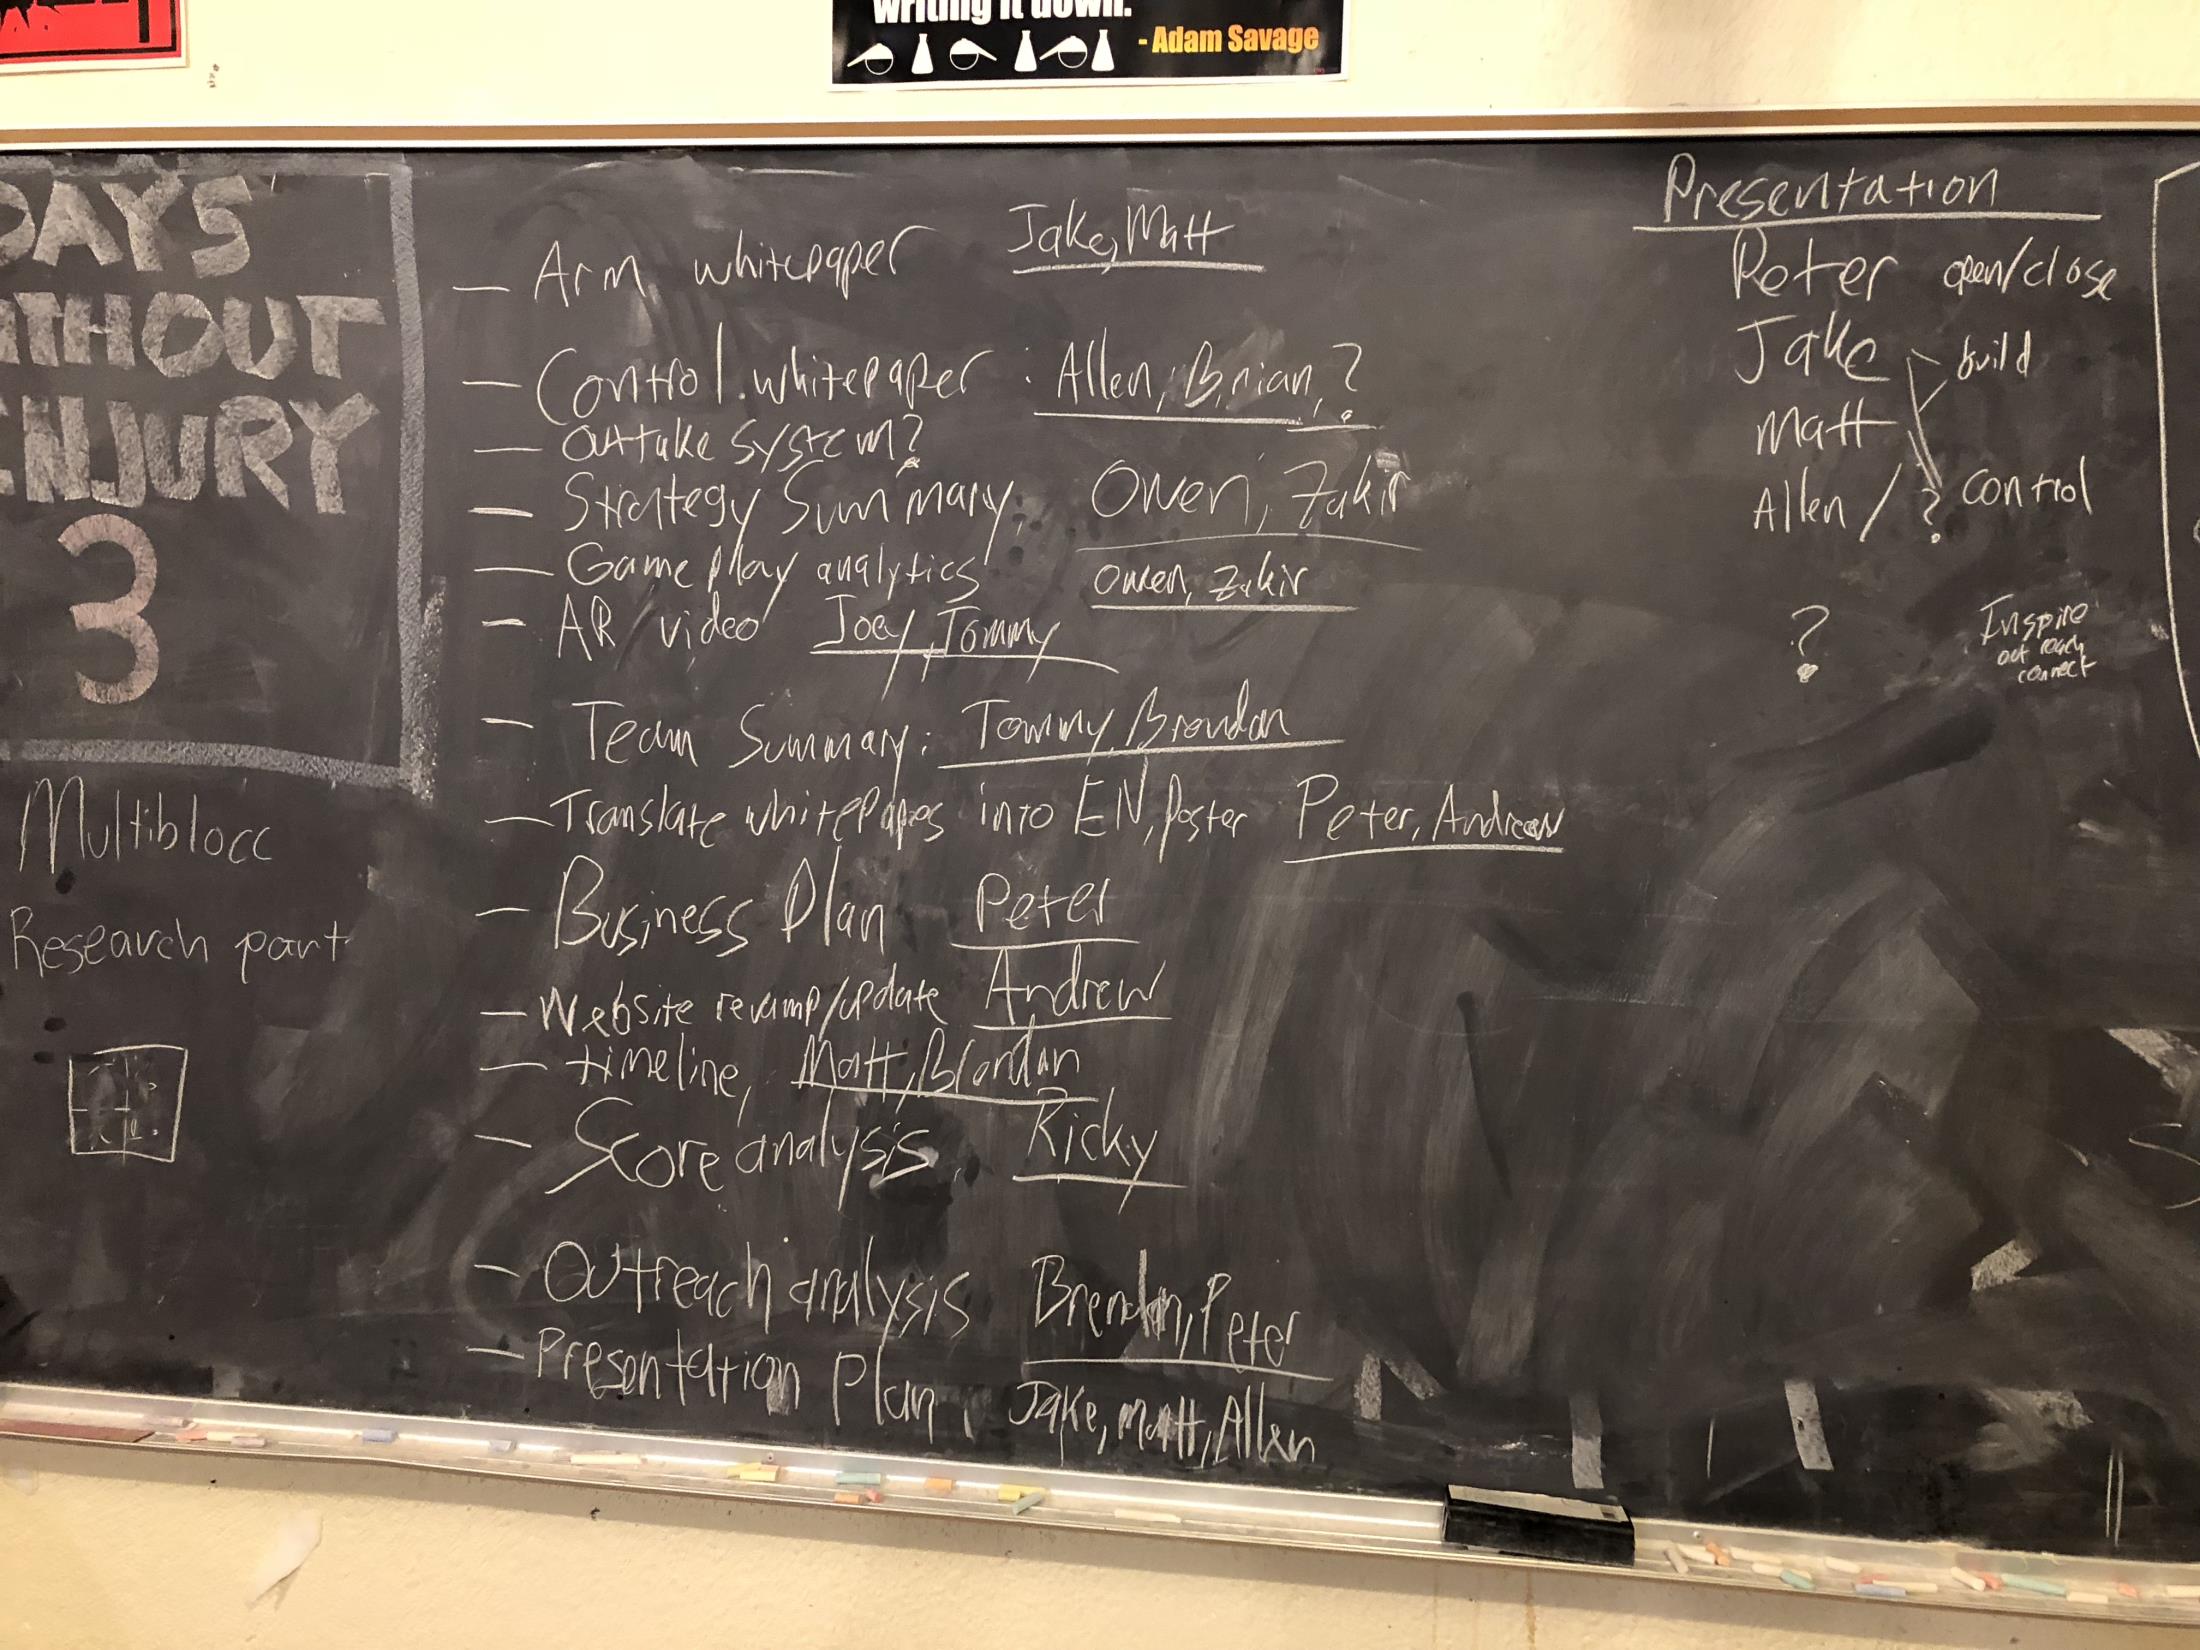 writing it down.
- Adam Savage
DAYS
WITHOUT
INJURY
3
Multiblocc
Research part
- Arm whitepaper Jake, Matt
- Control whitepaper : Allen, Brian, ?
- outtake system?
- Strategy Summary, Owen, Zakir
- Game play analytics Owen, Zakir
- AR video Joey, Tommy
- Team Summary: Tommy, Brendan
- Translate whitepapers into EN, poster Peter, Andrew
- Business Plan Peter
- Website revamp/update Andrew
- timeline, Matt, Brendan
- Score analysis, Ricky
- Outreach analysis Brendan, Peter
- Presentation Plan, Jake, Matt, Allen
Presentation
Peter open/close
Jake build
Matt
Allen / ? control
? Inspire
out reach
connect